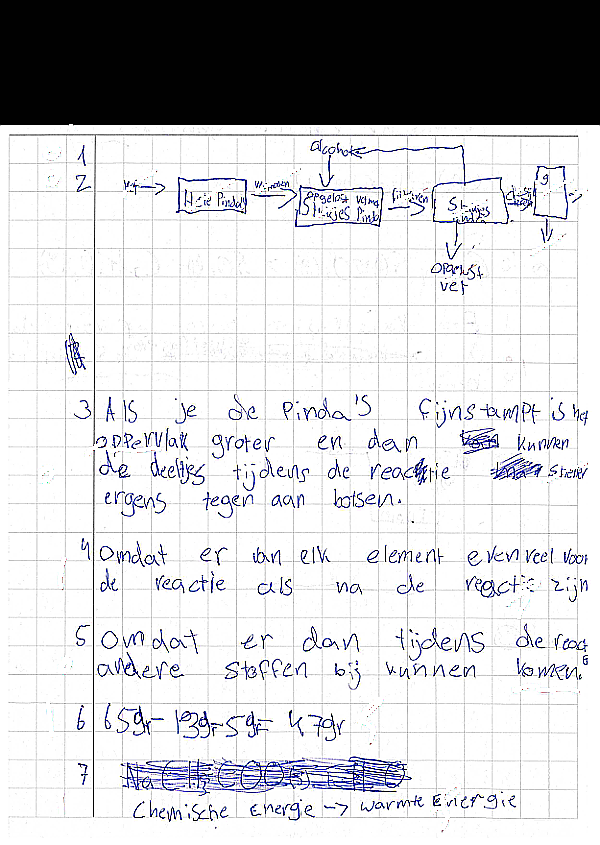 1
alcohol
2
Hele Pinda's
Opgelost vet met
Stukjes Pinda
filtreren
Stukjes
pinda
g
Opgelost
vet
3 Als je de Pinda's fijnstampt is het
oppervlak groter en dan kunnen
de deeltjes tijdens de reactie
ergens tegen aan botsen.
4 Omdat er van elk element evenveel voor
de reactie als na de reactie zijn
5 Omdat er dan tijdens de react
andere stoffen bij kunnen komen.
6 65gr - 13gr - 5gr = 47gr
7
Chemische Energie -> warmte Energie